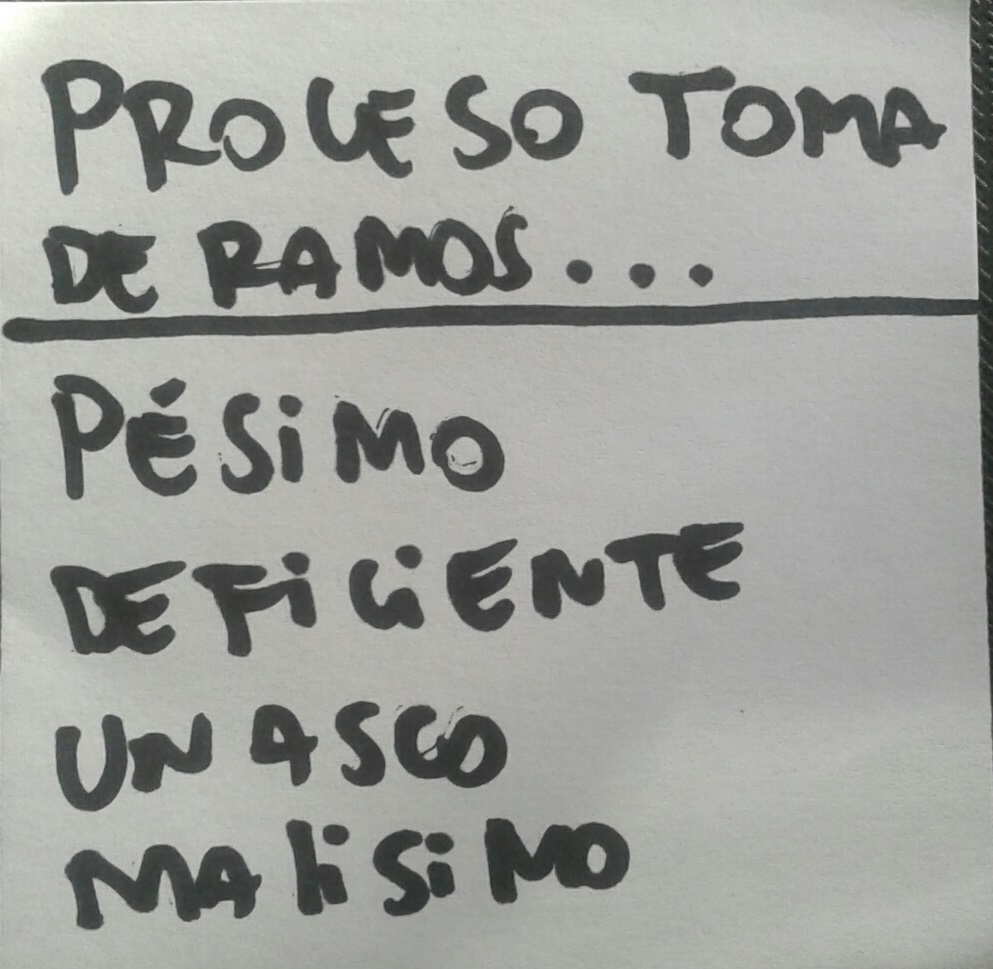 PROCESO TOMA
DE RAMOS...
PÉSiMO
DEFiCiENTE
UN ASCO
MALiSiMO